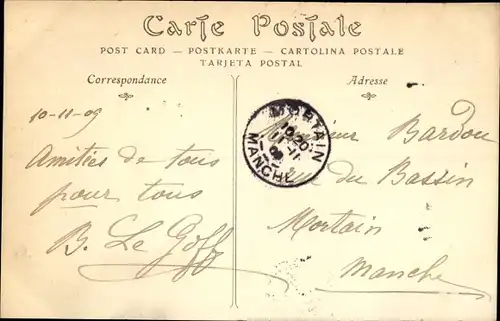 Carte Postale
POST CARD — POSTKARTE — CARTOLINA POSTALE
TARJETA POSTAL
Correspondance
10-11-09
Amitiés de tous
pour tous
B. Le Goff
Adresse
MORTAIN
10*20
11-11
09
MANCHE
Monsieur Bardou
Rue du Bassin
Mortain
Manche